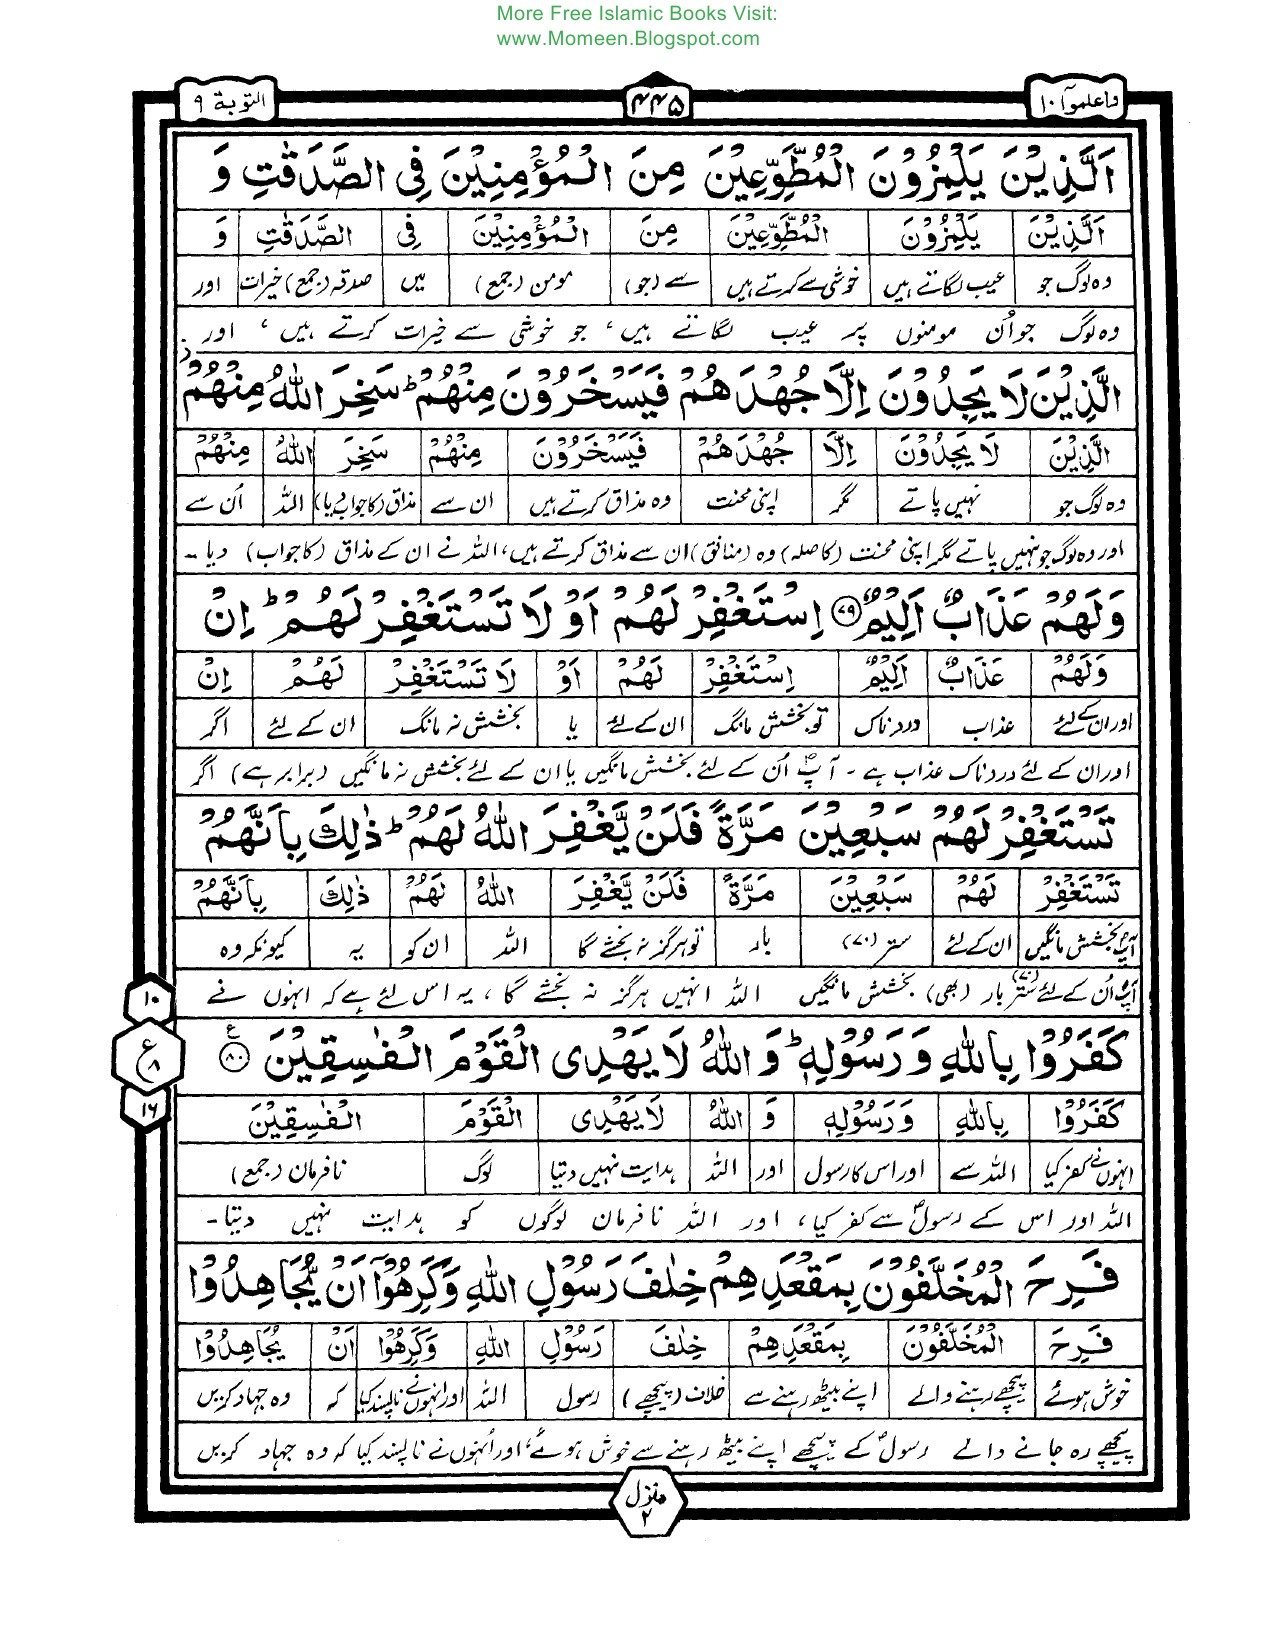 More Free Islamic Books Visit:
www.Momeen.Blogspot.com
واعلموآ ۱۰ ۴۴۵ التوبة ۹
اَلَّذِيْنَ يَلْمِزُوْنَ الْمُطَّوِّعِيْنَ مِنَ الْمُؤْمِنِيْنَ فِى الصَّدَقٰتِ وَ
اَلَّذِيْنَ يَلْمِزُوْنَ الْمُطَّوِّعِيْنَ مِنَ الْمُؤْمِنِيْنَ فِى الصَّدَقٰتِ وَ
وہ لوگ جو عیب لگاتے ہیں خوشی سے کرتے ہیں سے (جو) مومن (جمع) میں صدقہ (جمع) خیرات اور
وہ لوگ جو اُن مومنوں پر عیب لگاتے ہیں، جو خوشی سے خیرات کرتے ہیں، اور
الَّذِيْنَ لَا يَجِدُوْنَ اِلَّا جُهْدَهُمْ فَيَسْخَرُوْنَ مِنْهُمْ ؕ سَخِرَ اللّٰهُ مِنْهُمْ ز
الَّذِيْنَ لَا يَجِدُوْنَ اِلَّا جُهْدَهُمْ فَيَسْخَرُوْنَ مِنْهُمْ سَخِرَ اللّٰهُ مِنْهُمْ
وہ لوگ جو نہیں پاتے مگر اپنی محنت وہ مذاق کرتے ہیں ان سے مذاق (کا جواب دیا) اللہ اُن سے
اور وہ لوگ جو نہیں پاتے مگر اپنی محنت (کا صلہ) وہ (منافق) ان سے مذاق کرتے ہیں، اللہ نے ان کے مذاق (کا جواب) دیا۔
وَلَهُمْ عَذَابٌ اَلِيْمٌ ۷۹ اِسْتَغْفِرْ لَهُمْ اَوْ لَا تَسْتَغْفِرْ لَهُمْ ؕ اِنْ
وَلَهُمْ عَذَابٌ اَلِيْمٌ اِسْتَغْفِرْ لَهُمْ اَوْ لَا تَسْتَغْفِرْ لَهُمْ اِنْ
اور ان کے لئے عذاب دردناک تو بخشش مانگ ان کے لئے یا بخشش نہ مانگ ان کے لئے اگر
اور ان کے لئے دردناک عذاب ہے۔ آپؐ اُن کے لئے بخشش مانگیں یا ان کے لئے بخشش نہ مانگیں (برابر ہے) اگر
تَسْتَغْفِرْ لَهُمْ سَبْعِيْنَ مَرَّةً فَلَنْ يَّغْفِرَ اللّٰهُ لَهُمْ ؕ ذٰلِكَ بِاَنَّهُمْ
تَسْتَغْفِرْ لَهُمْ سَبْعِيْنَ مَرَّةً فَلَنْ يَّغْفِرَ اللّٰهُ لَهُمْ ذٰلِكَ بِاَنَّهُمْ
آپؐ بخشش مانگیں ان کے لئے ستر (۷۰) بار تو ہرگز نہ بخشے گا اللہ ان کو یہ کیونکہ وہ
آپؐ اُن کے لئے ستر (۷۰) بار (بھی) بخشش مانگیں اللہ انہیں ہرگز نہ بخشے گا، یہ اس لئے ہے کہ انہوں نے
۱۰
ع ۸
۱۶
كَفَرُوْا بِاللّٰهِ وَرَسُوْلِهٖ ؕ وَاللّٰهُ لَا يَهْدِى الْقَوْمَ الْفٰسِقِيْنَ ۸۰ ع
كَفَرُوْا بِاللّٰهِ وَرَسُوْلِهٖ وَ اللّٰهُ لَا يَهْدِى الْقَوْمَ الْفٰسِقِيْنَ
انہوں نے کفر کیا اللہ سے اور اس کا رسول اور اللہ ہدایت نہیں دیتا لوگ نافرمان (جمع)
اللہ اور اس کے رسولؐ سے کفر کیا، اور اللہ نافرمان لوگوں کو ہدایت نہیں دیتا۔
فَرِحَ الْمُخَلَّفُوْنَ بِمَقْعَدِهِمْ خِلٰفَ رَسُوْلِ اللّٰهِ وَكَرِهُوْٓا اَنْ يُّجَاهِدُوْا
فَرِحَ الْمُخَلَّفُوْنَ بِمَقْعَدِهِمْ خِلٰفَ رَسُوْلِ اللّٰهِ وَكَرِهُوْٓا اَنْ يُّجَاهِدُوْا
خوش ہوئے پیچھے رہنے والے اپنے بیٹھ رہنے سے خلاف (پیچھے) رسول اللہ اور انہوں نے ناپسند کیا کہ وہ جہاد کریں
پیچھے رہ جانے والے رسولؐ کے پیچھے اپنے بیٹھ رہنے سے خوش ہوئے، اور اُنہوں نے ناپسند کیا کہ وہ جہاد کریں
منزل ۲